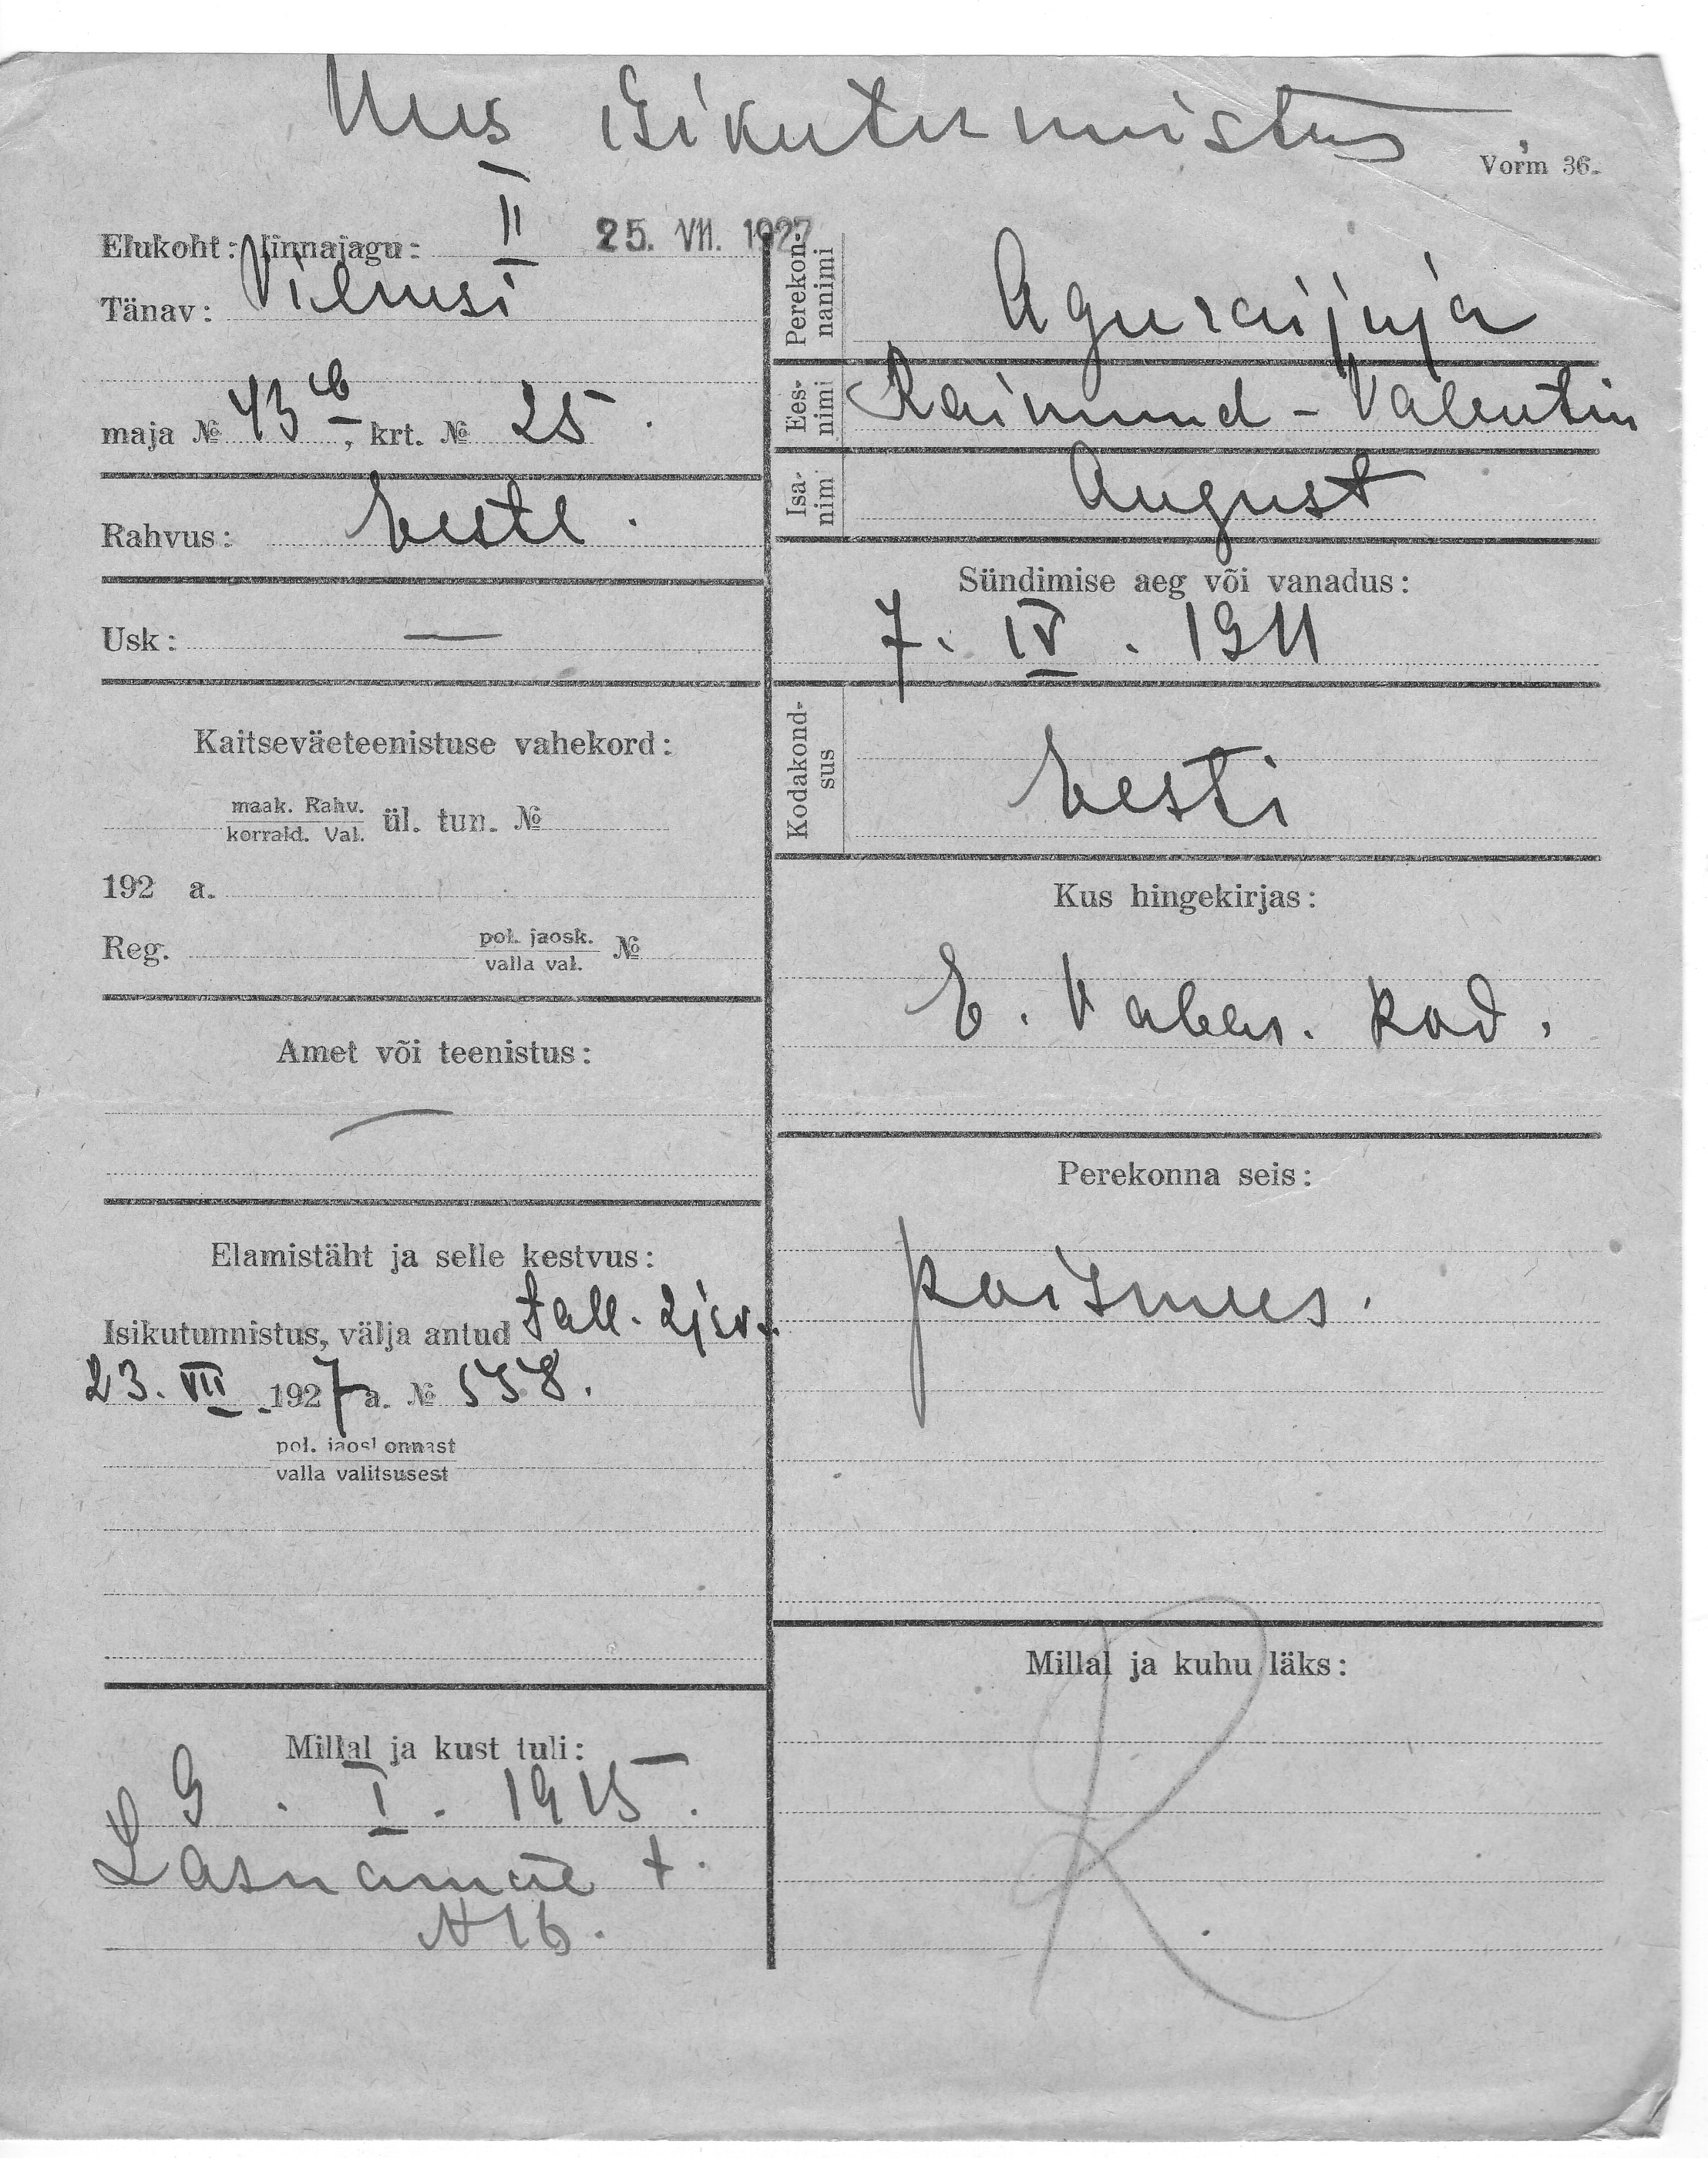 Uus isikutunnistus,
Vorm 36.
Elukoht: linnajagu: II
25. VII. 1927
Tänav: Vilmsi
maja № 43 b, krt. № 25.
Rahvus: Eestl.
Usk: —
Kaitseväeteenistuse vahekord:
maak. Rahv.
korrald. Val.
ül. tun. №
192 a.
Reg. pol. jaosk. №
valla val.
Amet või teenistus:
—
Elamistäht ja selle kestvus:
Isikutunnistus, välja antud Tall. 2 jsk.
23. VII 1927 a. № 558.
pol. jaoskonnast
valla valitsusest
Millal ja kust tuli:
9. I. 1915.
Lasnamäe t.
N 16.
Perekon-
nanimi
Aguraijuja
Ees-
nimi
Raimund-Valentin
Isa-
nimi
August
Sündimise aeg või vanadus:
7. IV. 1911
Kodakond-
sus
Eesti
Kus hingekirjas:
E. Vabar. Kod.
Perekonna seis:
poismees.
Millal ja kuhu läks:
R